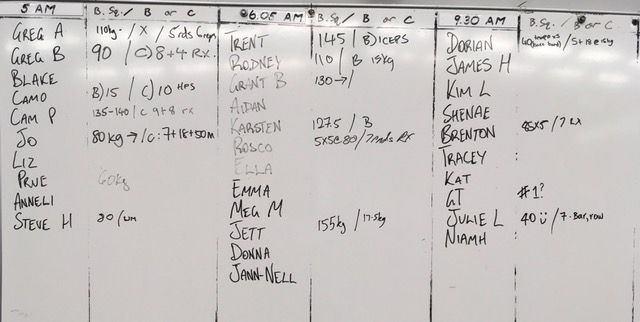 5 AM
B.Sq. / B or C
GREG A 110kg / X / 5rds
GREG B 90 / C) 8+4 Rx.
BLAKE
CAMO B) 15 / C) 10
CAM P 135-140 / C 9+8 rx
JO 80kg → / C: 7+18+50m
LIZ
PRUE 60kg
ANNELI
STEVE H
6.05 AM
B.Sq. / B or C
TRENT 145 / B) ICEPS
RODNEY 110 / B 15kg
GRANT B 130 → /
AIDAN
KARSTEN 127.5 / B
ROSCO 5x5@80 / 7rnds RX
ELLA
EMMA
MEG M
JETT 155kg / 17.5kg
DONNA
JANN-NELL
9.30 AM
B.Sq. / B or C
DORIAN
JAMES H
KIM L
SHENAE
BRENTON 85x5 / 7 RX
TRACEY
KAT
GT #1?
JULIE L 40 / 7. Bar, row
NIAMH